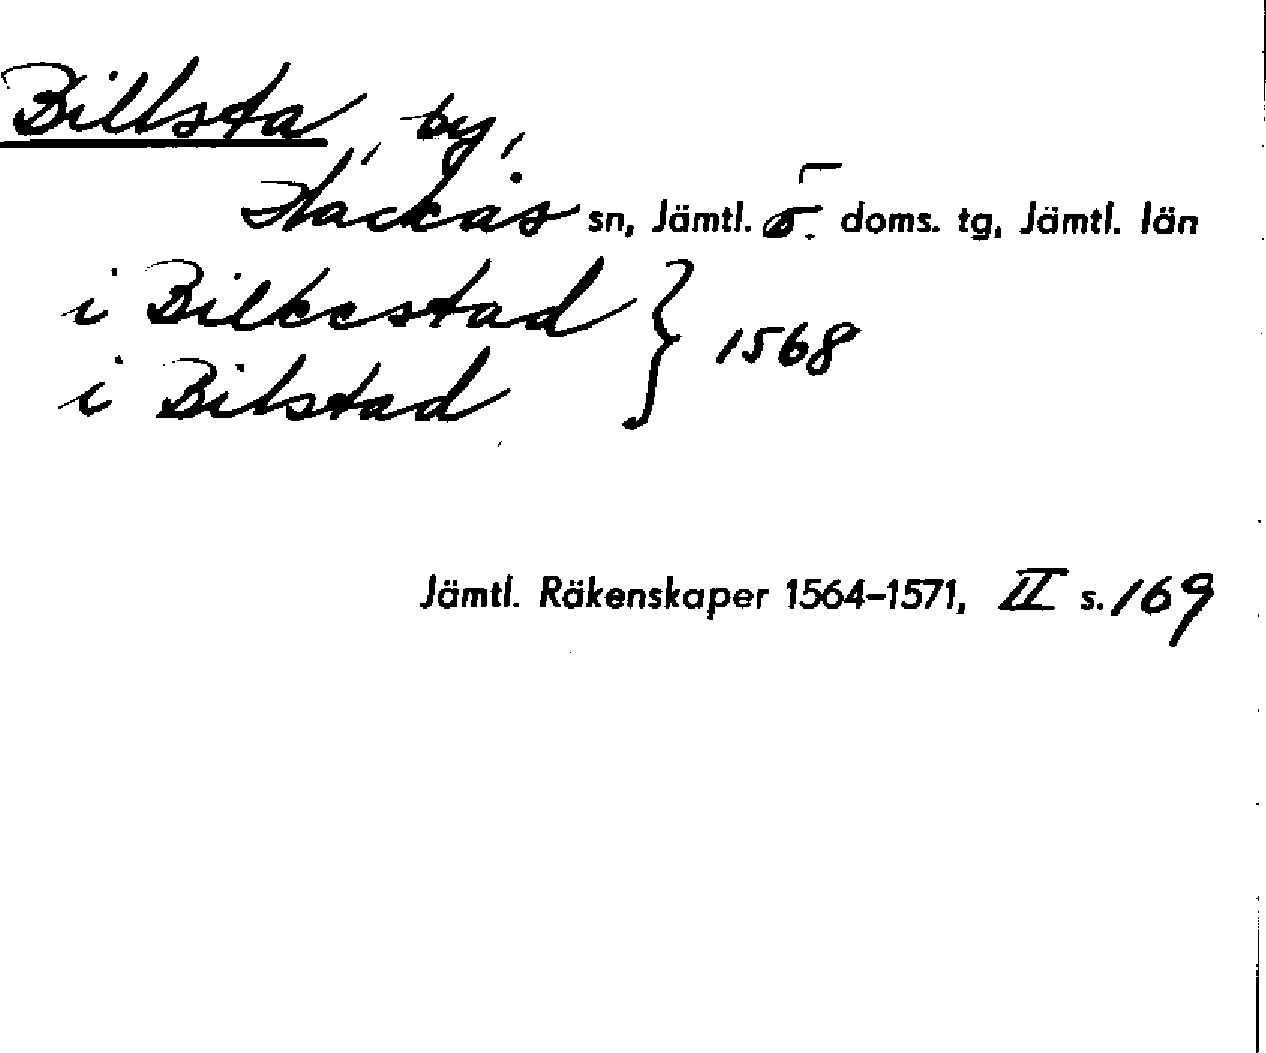 Billsta, by,
Hackås sn, Jämtl. ö. doms. tg, Jämtl. län
i Billestad } 1568
i Bilstad
Jämtl. Räkenskaper 1564–1571, II s. 169